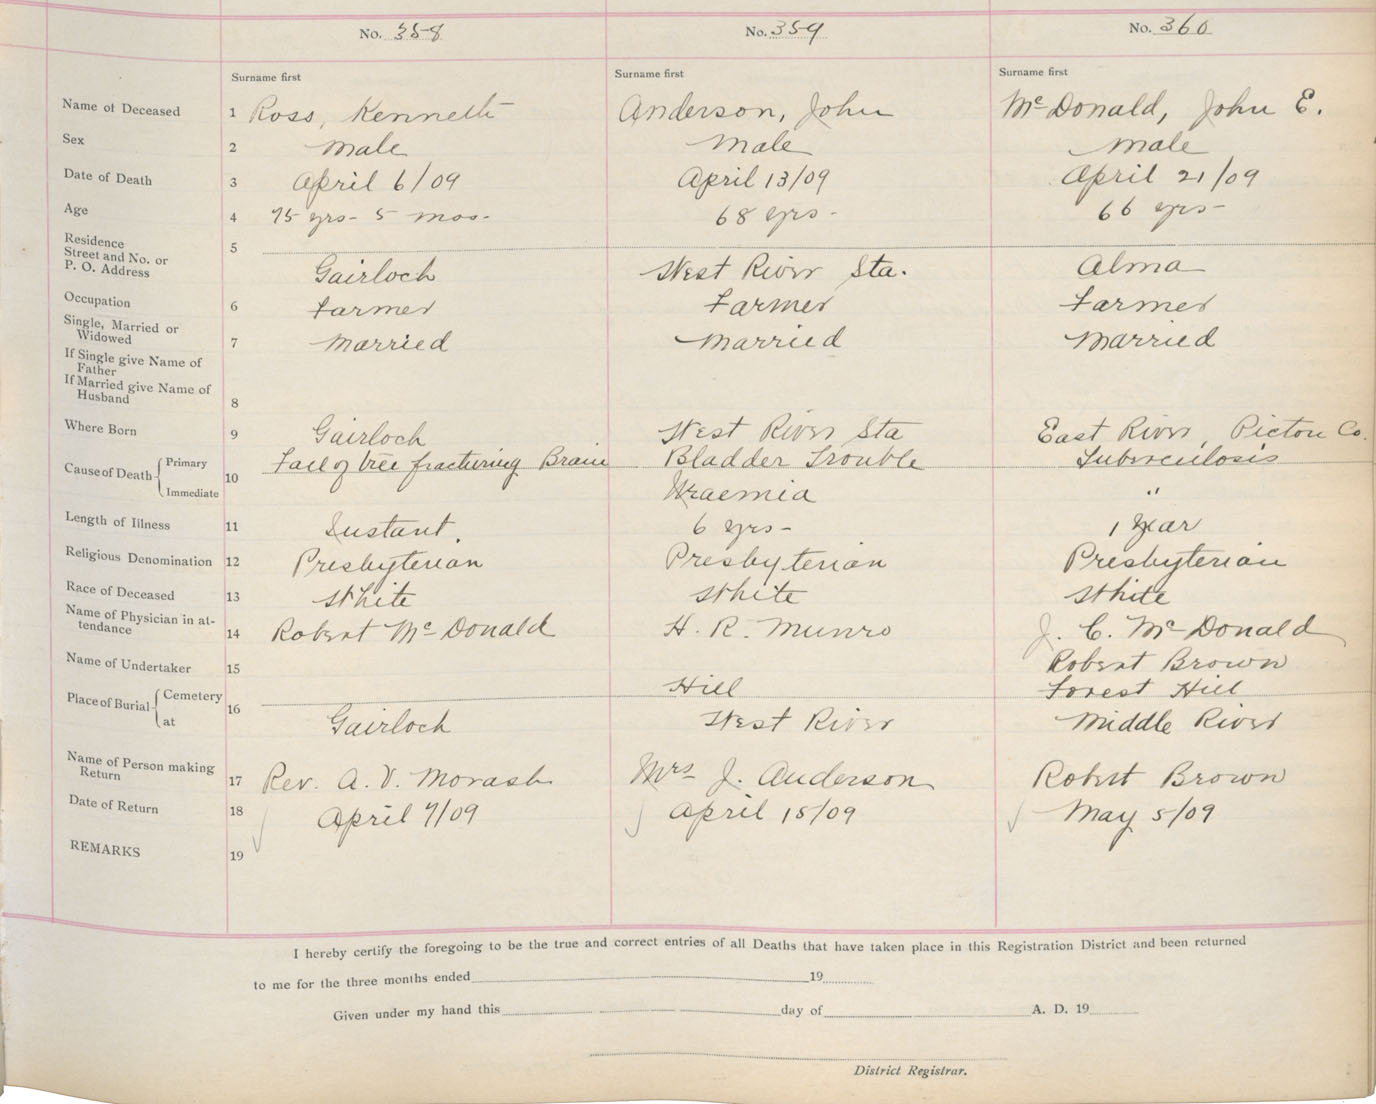 No. 358 No. 359 No. 360
Surname first Surname first Surname first
Name of Deceased 1 Ross, Kenneth Anderson, John McDonald, John E.
Sex 2 Male Male Male
Date of Death 3 April 6/09 April 13/09 April 21/09
Age 4 75 yrs - 5 mos - 68 yrs - 66 yrs -
Residence 5
Street and No. or
P. O. Address Gairloch West River Sta. Alma
Occupation 6 Farmer Farmer Farmer
Single, Married or
Widowed 7 Married Married Married
If Single give Name of
Father
If Married give Name of
Husband 8
Where Born 9 Gairloch West River Sta East River, Pictou Co.
Cause of Death Primary 10 Fall of tree fracturing Brain Bladder Trouble Tuberculosis
Immediate Uraemia "
Length of Illness 11 Instant. 6 yrs - 1 year
Religious Denomination 12 Presbyterian Presbyterian Presbyterian
Race of Deceased 13 White White White
Name of Physician in at-
tendance 14 Robert McDonald H. R. Munro J. C. McDonald
Name of Undertaker 15 Robert Brown
Place of Burial Cemetery 16 Hill Forest Hill
at Gairloch West River Middle River
Name of Person making
Return 17 Rev. A. V. Morash Mrs J. Anderson Robert Brown
Date of Return 18 April 7/09 April 15/09 May 5/09
REMARKS 19
I hereby certify the foregoing to be the true and correct entries of all Deaths that have taken place in this Registration District and been returned
to me for the three months ended 19
Given under my hand this day of A. D. 19
District Registrar.